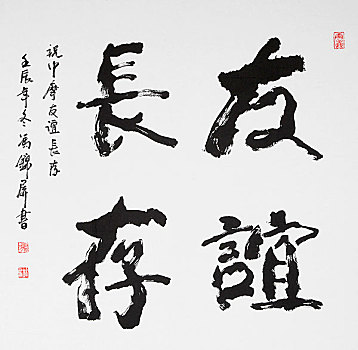 友誼
長存
祝中摩友谊長存
壬辰年冬馮錦屏書